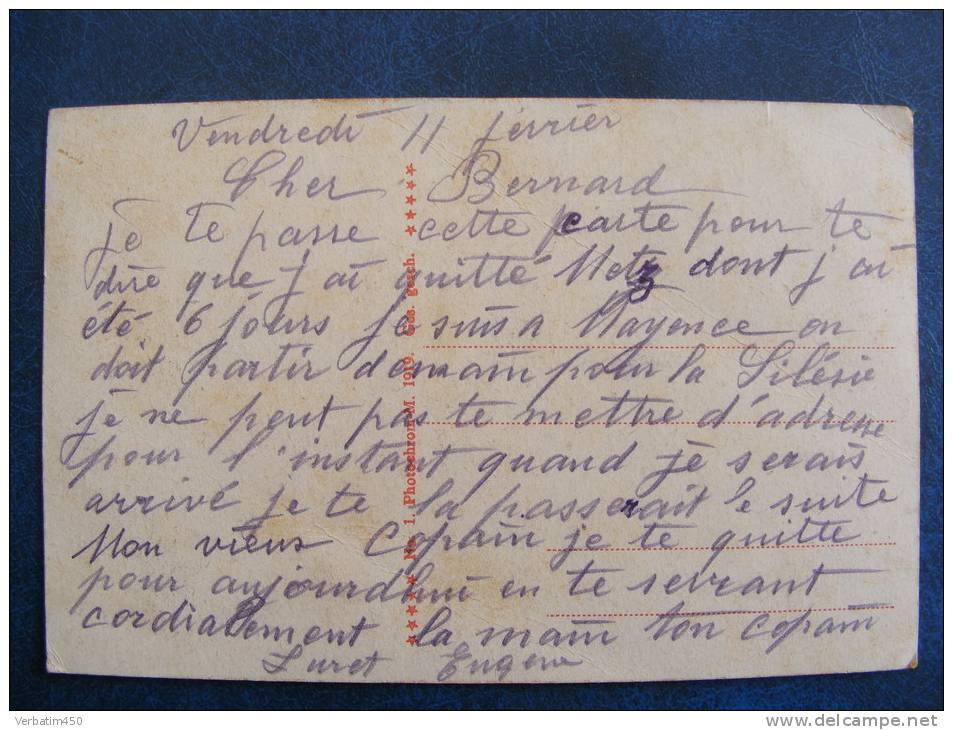 Vendredi 11 février
Cher Bernard
je te passe cette carte pour te
dire que j ai quitté Metz dont j ai
été 6 jours je suis a Mayence on
doit partir demain pour la Silésie
je ne peut pas te mettre d'adresse
pour l'instant quand je serais
arrivé je te la passerait le suite
Mon vieux Copain je te quitte
pour aujourdhui en te serrant
cordialement la main ton copain
Luret Eugene
★★★★★ Nr. 1. Photochrom M. 1919. Ges. gesch. ★★★★★
Verbatim450
www.delcampe.net